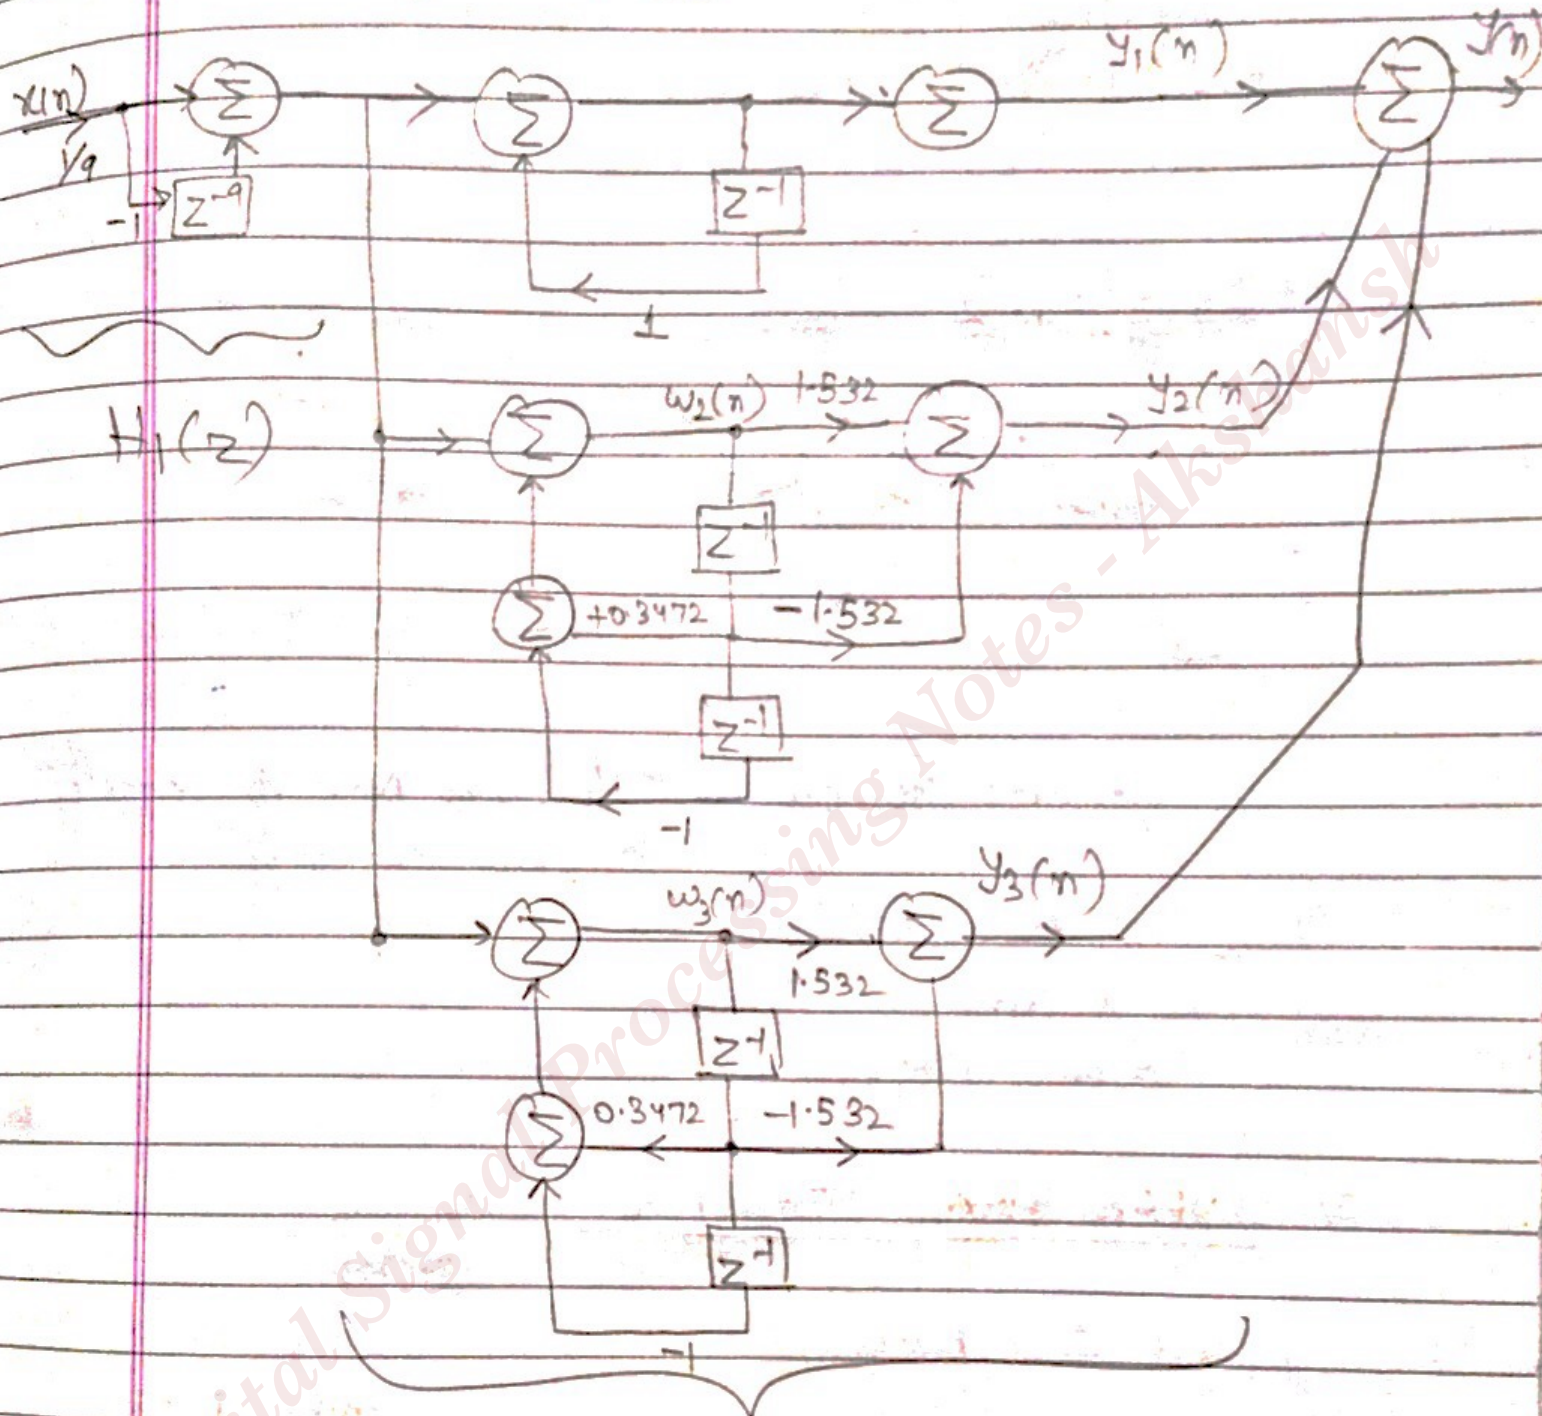 x(n) Σ Σ Σ y₁(n) Σ y(n)
1/9
-1 z⁻⁹ z⁻¹
1
H₁(z) Σ w₂(n) 1.532 Σ y₂(n)
z⁻¹
Σ +0.3472 -1.532
z⁻¹
-1
Σ w₃(n) Σ y₃(n)
1.532
z⁻¹
Σ 0.3472 -1.532
z⁻¹
-1
ital Signal Processing Notes - Akshansh